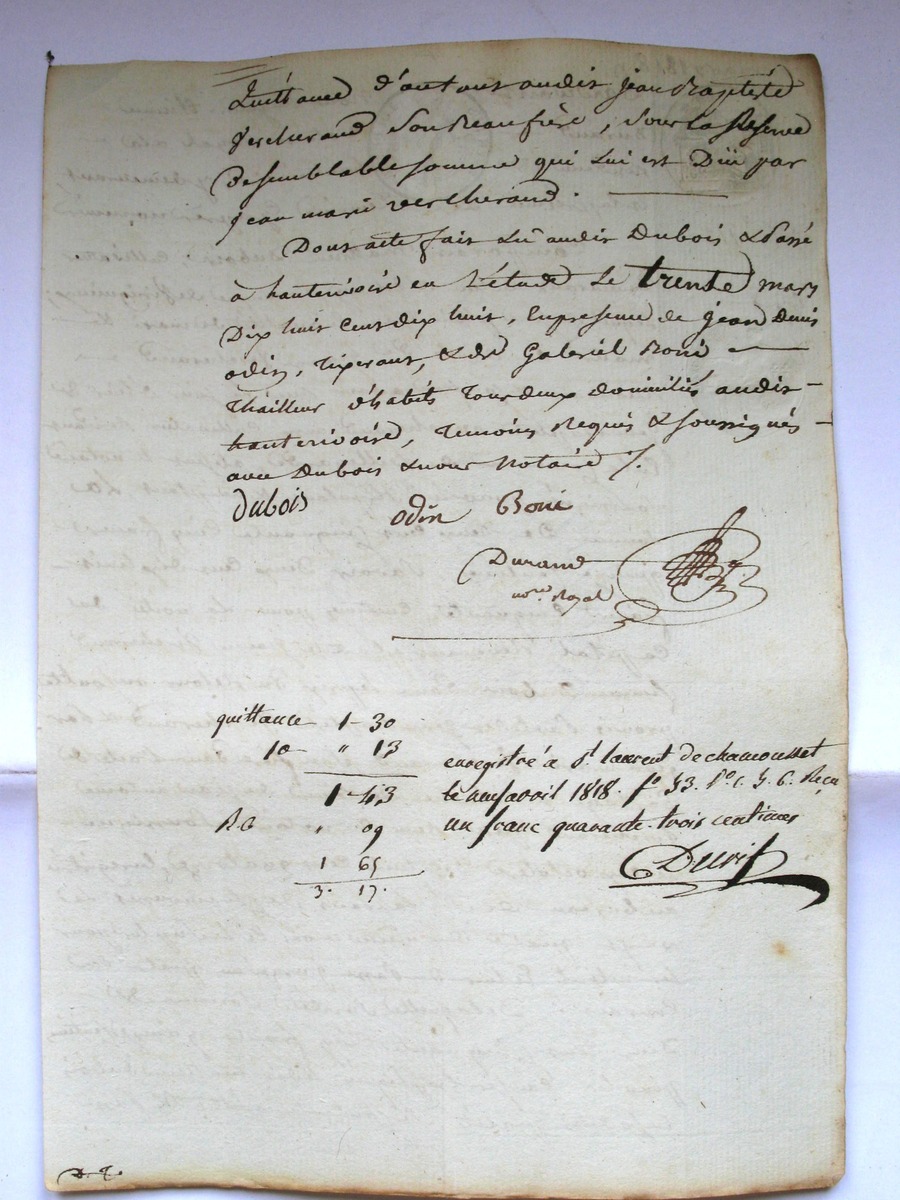 Quittance d'autant audit jean Baptiste
Vercherand Son Beaufrère, Sous la Reserve
De semblable somme qui Lui est Düe par
jean marie vercherand.
Dont acte fait Lu audit Dubois & Passé
à hauterivoire en L'étude Le trente mars
Dix huit Cent dix huit, En presence de jean denis
odin, Tixerant, & de Gabriel Boné
Thailleur d'habits Tous deux domiciliés audit
hauterivoire, Temoins Requis & soussignés
avec Dubois & nous Notaire /.
dubois odin Boné
Durand
no.re Royal
quittance 1-30
10- " 13
1-43
" 09
1 65
3. 17.
enregistré à St. laurent de chamousset
le neuf avril 1818. fo 53. Ro. c. 5. 6. Reçu
un franc quarante-trois centimes